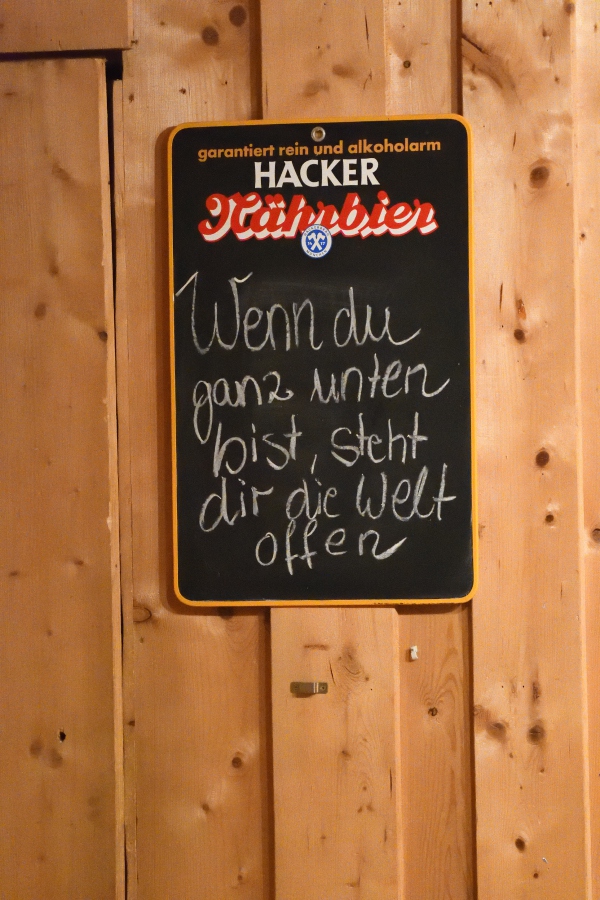 garantiert rein und alkoholarm
HACKER
Nährbier
Wenn du
ganz unten
bist, steht
dir die Welt
offen